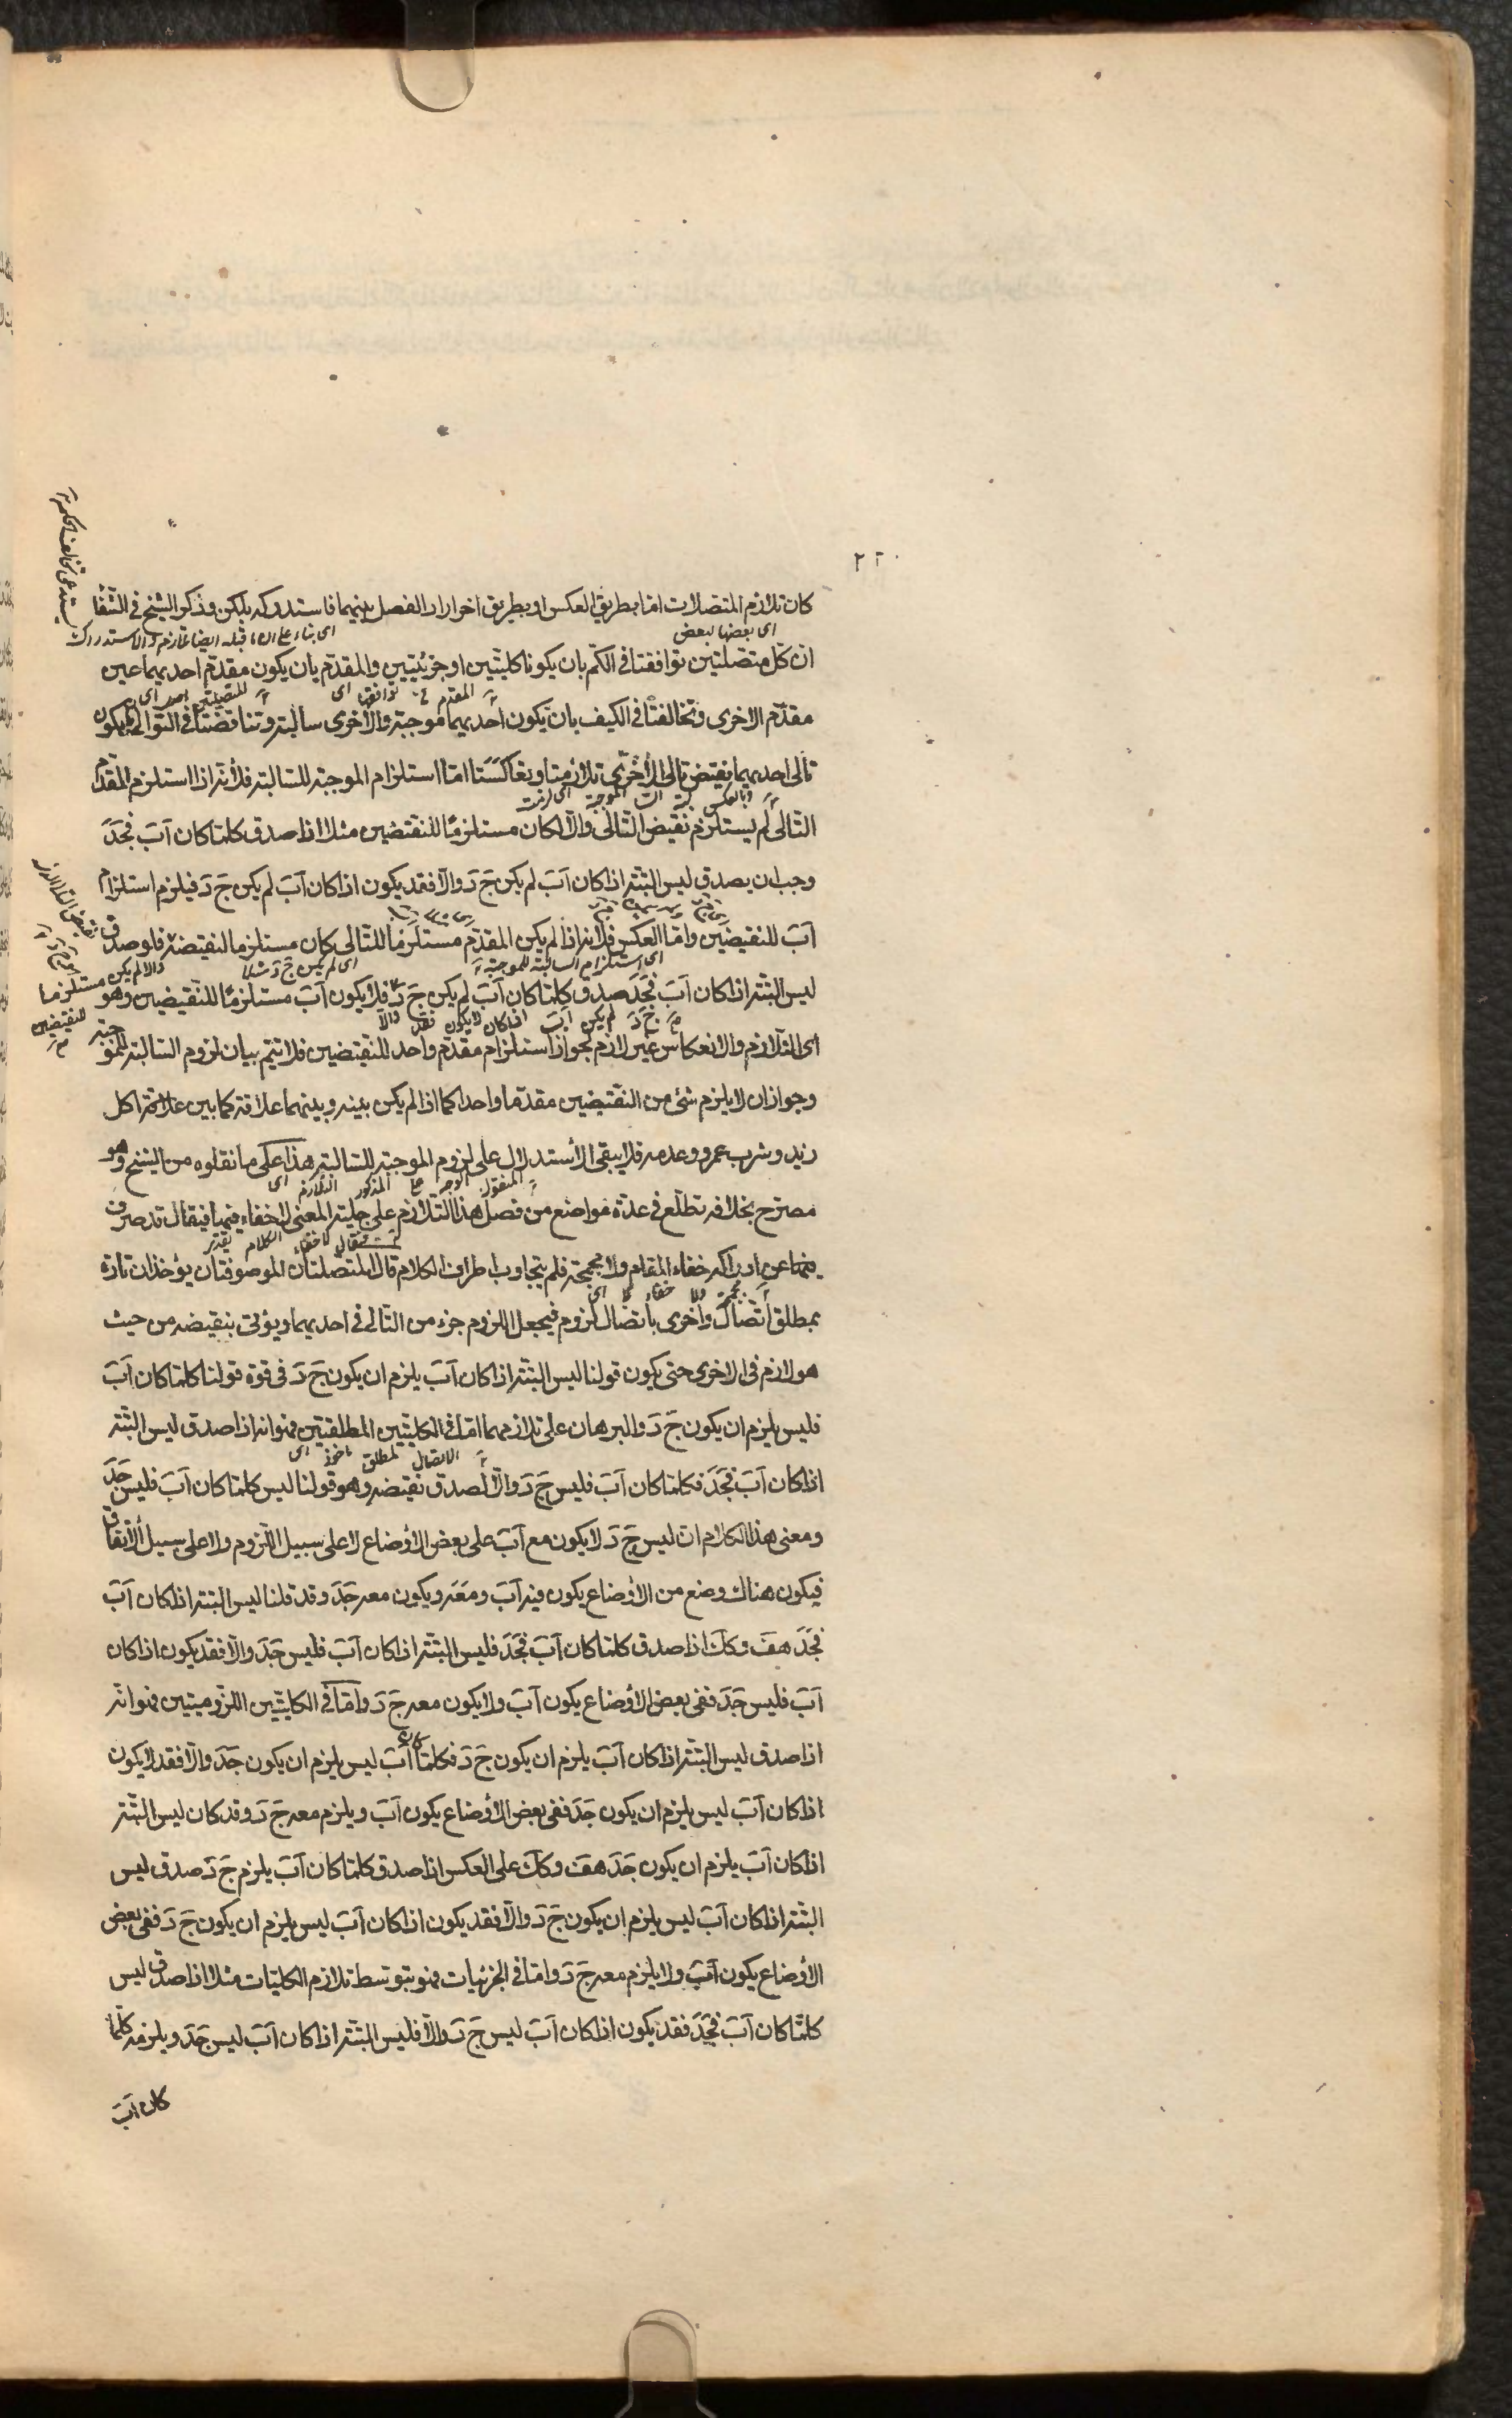 ٢٢٠
كان تلازم المتصلات اما بطريق العكس او بطريق اخر اراد الفصل بينهما فاستدركه بلكن وذكر الشيخ في الشفا
اى بعضها لبعض
ان كل متصلتين توافقتا في الكم بان يكونا كليتين او جزئيتين والمقدم بان يكون مقدم احديهما عين
مقدم الاخرى وتخالفتا في الكيف بان يكون احديهما موجبة والاخرى سالبة وتناقضتا في التوالى بان يكون
تالى احديهما نقيض تالى الاخرى تلازمتا وتعاكستا اما استلزام الموجبة للسالبة فلانه اذا استلزم المقدم
التالى لم يستلزم نقيض التالى والا لكان مستلزما للنقيضين مثلا اذا صدق كلما كان آب فجد
وجب ان يصدق ليس البتة اذا كان آب لم يكن ج د والا فقد يكون اذا كان آب لم يكن ج د فيلزم استلزام
آب للنقيضين واما العكس فلانه اذا لم يكن المقدم مستلزما للتالى كان مستلزما لنقيضه فلو صدق
اى استلزام السالبة للموجبة
اى لم يكن ج د مثلا
والا لم يكن مستلزما للنقيضين
ليس البتة اذا كان آب فجد صدق كلما كان آب لم يكن ج د فلا يكون آب مستلزما للنقيضين وهو
والا فقد لا يكون اذا كان آب لم يكن ج د
اى التلازم والانعكاس غير لازم لجواز استلزام مقدم واحد للنقيضين فلا تتم بيان لزوم السالبة للموجبة
وجواز ان لا يلزم شئ من النقيضين مقدما واحدا كما اذا لم يكن بينه وبينهما علاقة كما بين علاقة اكل
زيد وشرب عمرو وعدمه فلا يبقى الاستدلال على لزوم الموجبة للسالبة هذا على ما نقلوه من الشيخ وهو
مصرح بخلافه تطلع في عدة مواضع من فصل هذا التلازم على جلية المعنى لا خفاء فيها فيقال قد صرف
فهما عن ادراكه خفاء المقام ولا مجمجة فلم يتجاوب اطراف الكلام قال المتصلتان الموصوفتان يؤخذان تارة
بمطلق اتصال واخرى باتصال لزوم فيجعل اللزوم جزء من التالى في احديهما ويؤتى بنقيضه من حيث
هو لازم في الاخرى حتى يكون قولنا ليس البتة اذا كان آب يلزم ان يكون ج د في قوة قولنا كلما كان آب
فليس يلزم ان يكون ج د والبرهان على تلازمهما اما في الكليتين المطلقتين فهو انه اذا صدق ليس البتة
اى ماخوذ لمطلق الاتصال
اذا كان آب فجد فكلما كان آب فليس ج د والا لصدق نقيضه وهو قولنا ليس كلما كان آب فليس جد
ومعنى هذا الكلام ان ليس ج د لا يكون مع آب على بعض الاوضاع لا على سبيل اللزوم ولا على سبيل الاتفاق
فيكون هناك وضع من الاوضاع يكون فيه آب ومعه ويكون معه جد وقد قلنا ليس البتة اذا كان آب
فجد هف وكك اذا صدق كلما كان آب فجد فليس البتة اذا كان آب فليس جد والا فقد يكون اذا كان
آب فليس جد ففي بعض الاوضاع يكون آب ولا يكون معه ج د واما في الكليتين اللزوميتين فهو انه
اذا صدق ليس البتة اذا كان آب يلزم ان يكون ج د فكلما كان آب ليس يلزم ان يكون جد والا فقد لا يكون
اذا كان آب ليس يلزم ان يكون جد ففي بعض الاوضاع يكون آب ويلزم معه ج د وقد كان ليس البتة
اذا كان آب يلزم ان يكون جد هف وكك على العكس اذا صدق كلما كان آب يلزم ج د صدق ليس
البتة اذا كان آب ليس يلزم ان يكون ج د والا فقد يكون اذا كان آب ليس يلزم ان يكون ج د ففي بعض
الاوضاع يكون آب ولا يلزم معه ج د واما في الجزئيات فهو بتوسط تلازم الكليات مثلا اذا صدق ليس
كلما كان آب فجد فقد يكون اذا كان آب ليس ج د والا فليس البتة اذا كان آب ليس جد ويلزمه كلما
كان آب